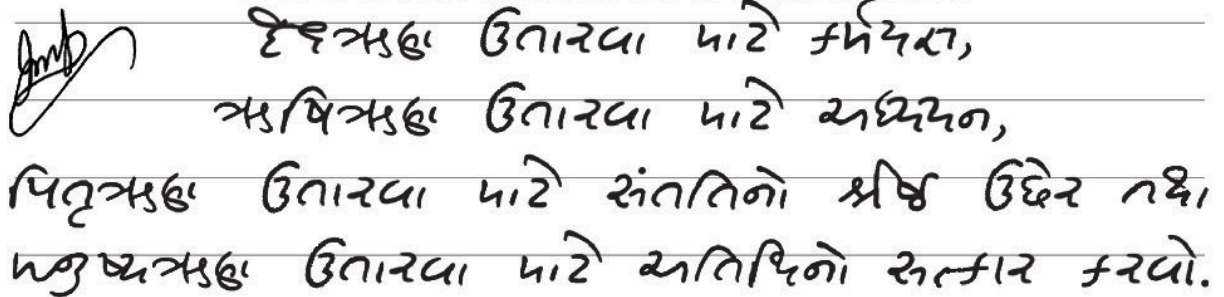 દેવઋણ ઉતારવા માટે કર્મયજ્ઞ,
ઋષિઋણ ઉતારવા માટે અધ્યયન,
પિતૃઋણ ઉતારવા માટે સંતતિનો શ્રેષ્ઠ ઉછેર તથા
મનુષ્યઋણ ઉતારવા માટે અતિથિનો સત્કાર કરવો.